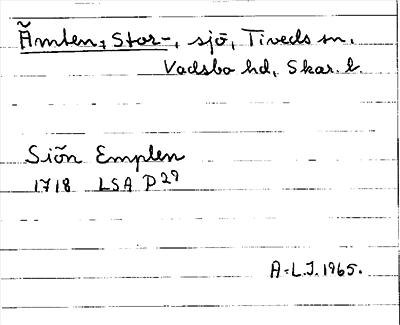 Ämten, Stor-, sjö, Tiveds sn.
Vadsbo hd, Skar. l.
Siön Emplen
1718 LSA P29
A-L.J. 1965.